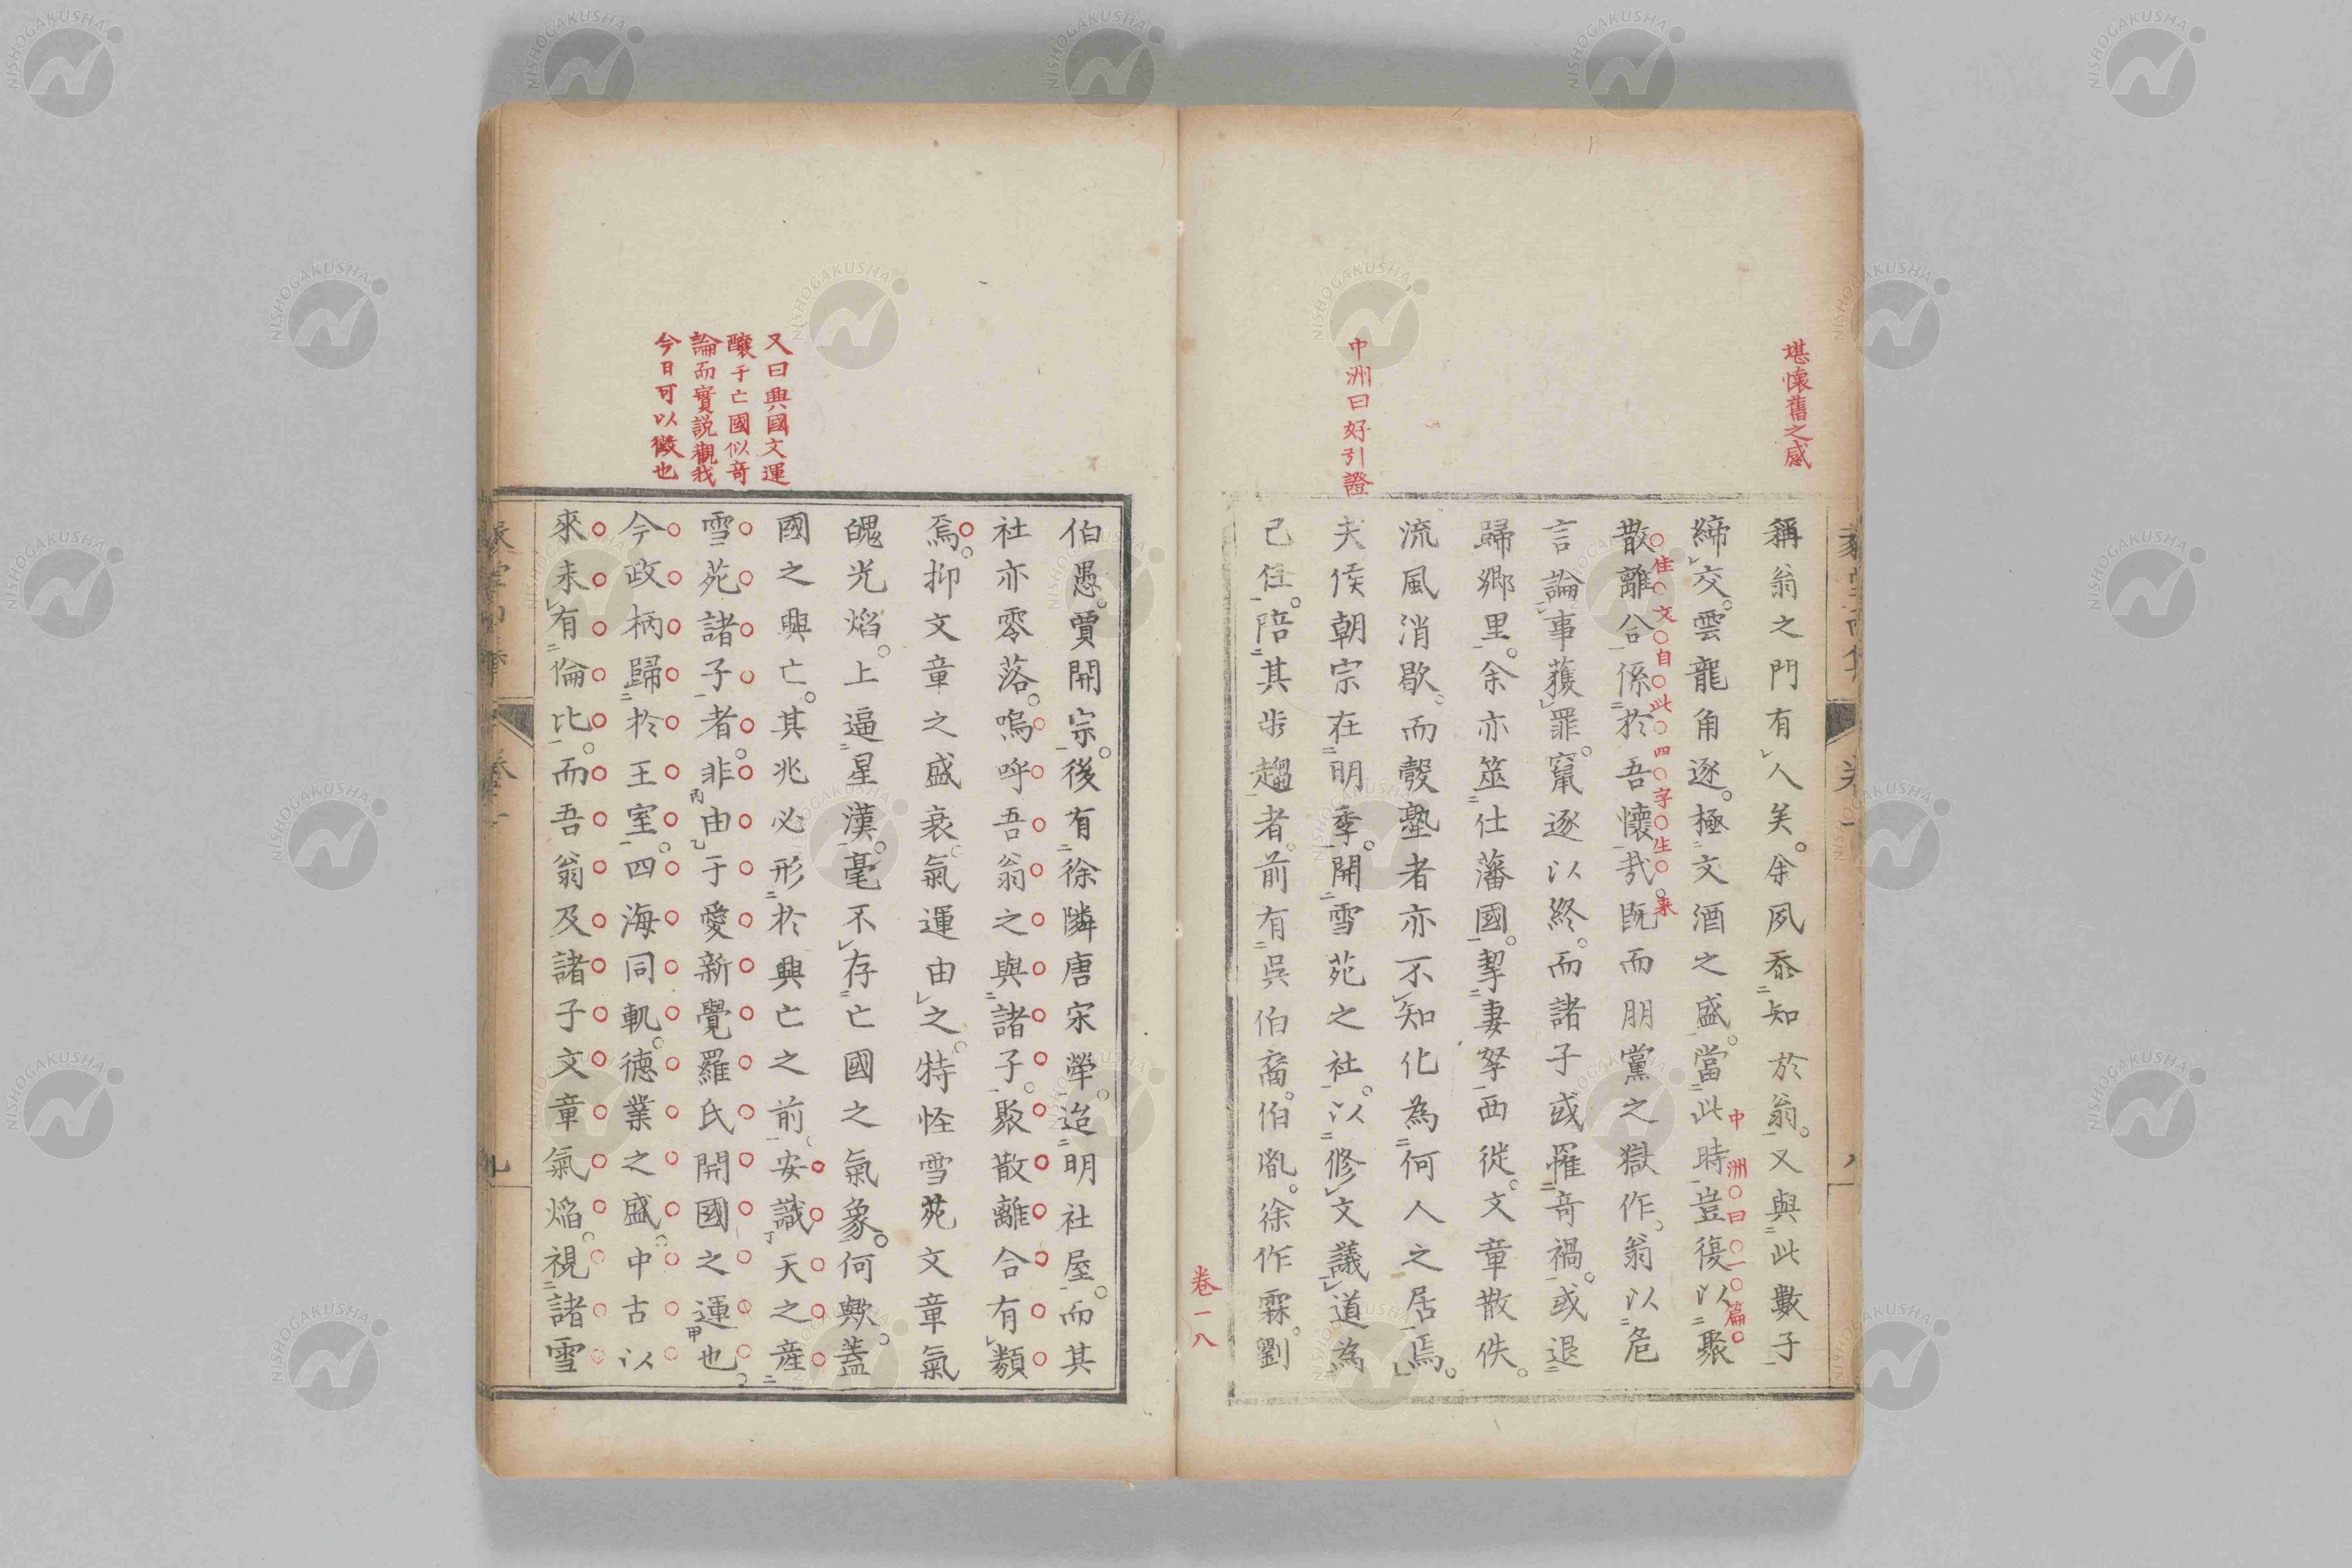 堪懷舊之感
稱翁之門有人矣。余夙忝知於翁。又與此數子
締交。雲龍角逐。極文酒之盛。當此時豈復以聚
中洲曰一篇
佳文自此四字生來
散離合係於吾懷哉。既而朋黨之獄作。翁以危
言論事獲罪。竄逐以終。而諸子或罹奇禍。或退
歸鄉里。余亦筮仕藩國。挈妻孥西徙。文章散佚。
流風消歇、而彀塾者亦不知化為何人之居焉。
中洲曰好引證
夫侯朝宗在明季。開雪苑之社。以修文議道為
己任。陪其步趨者。前有吳伯裔。伯胤。徐作霖。劉
卷一八
伯愚。賈開宗。後有徐隣唐宋犖。迨明社屋。而其
社亦零落。嗚呼吾翁之與諸子。聚散離合有類
焉。抑文章之盛衰。氣運由之。特怪雪苑文章氣
魄光焰。上逼星漢。毫不存亡國之氣象。何歟。蓋
又曰興國文運
釀于亡國似奇
論而實説觀我
今日可以徵也
國之興亡。其兆必形於興亡之前、安識天之產
雪苑諸子者。非由于愛新覺羅氏開國之運也。
今政柄歸於王室。四海同軌。德業之盛。中古以
來未有倫比。而吾翁及諸子文章氣焰。視諸雪
NISHOGAKUSHA